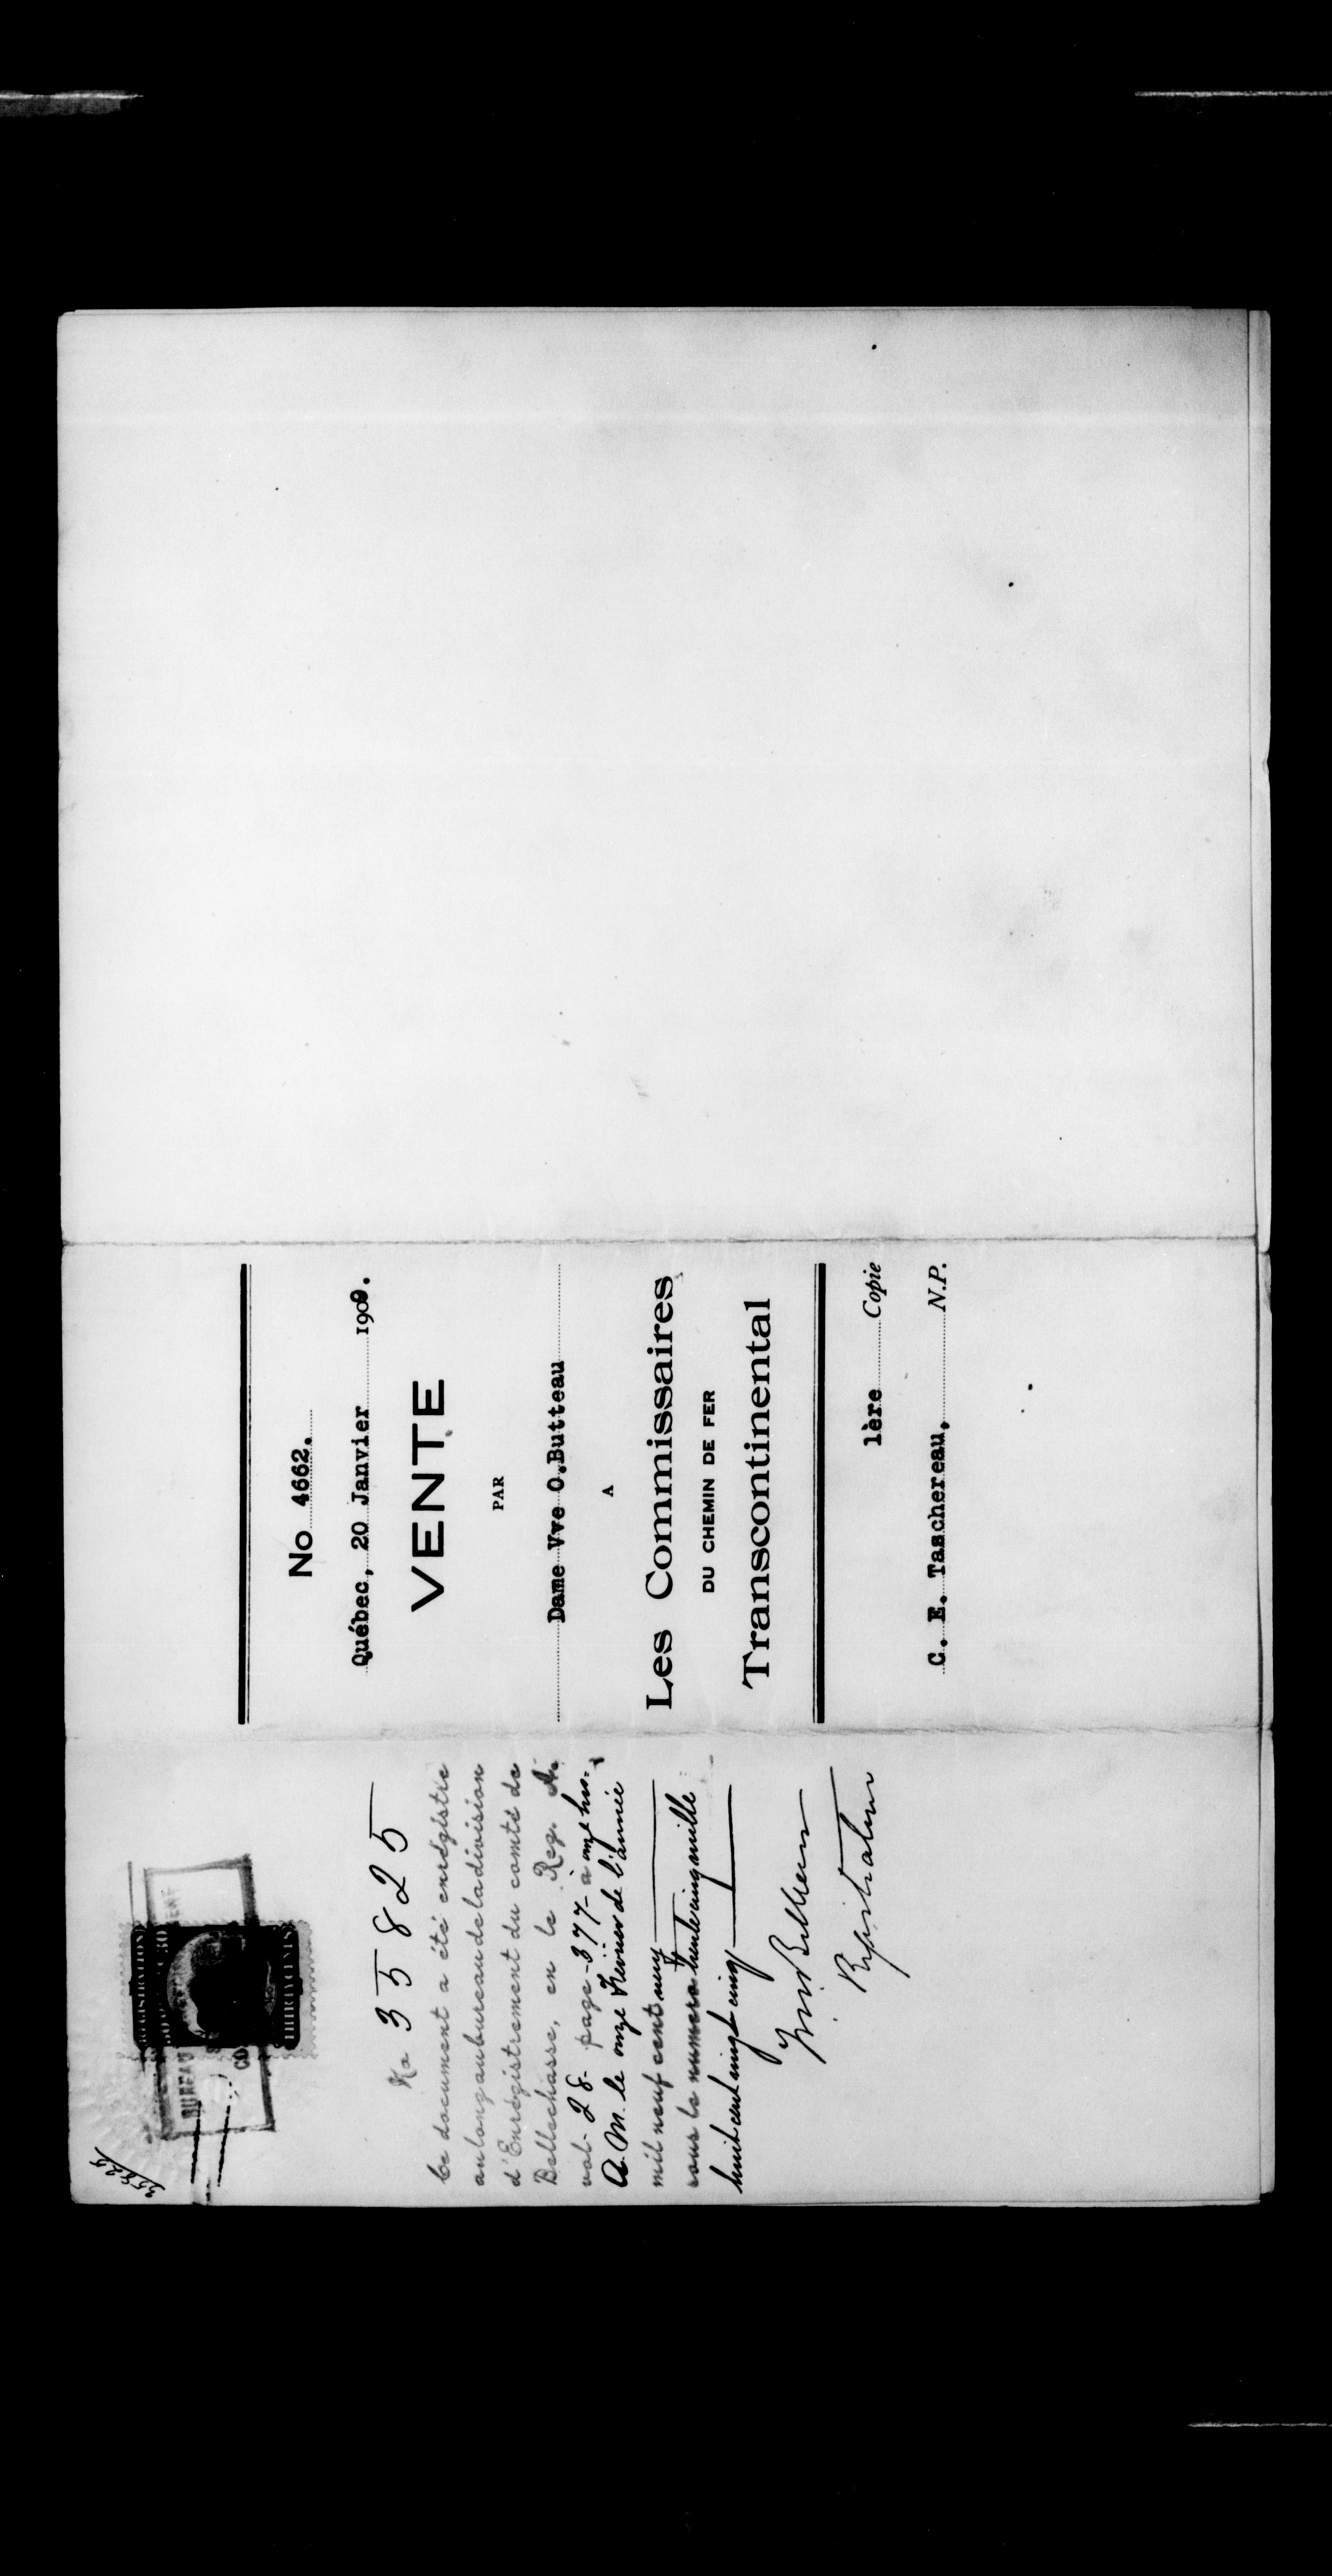 35825
REGISTRATION
THIRTY CENTS
BUREAU
No 35825
Ce document a été enrégistré
au long au bureau de la division
d'Enrégistrement du comté de
Bellechasse, en le Reg. A.
vol- 28- page -377- à onze hrs.
A.M. le onze Février de l'année
mil neuf cent neuf
sous le numéro trente cinq mille
huit cent vingt cinq
Registrateur
No 4662.
Québec, 20 Janvier 1909.
VENTE
PAR
Dame Vve O.Butteau
A
Les Commissaires
DU CHEMIN DE FER
Transcontinental
1ère Copie
C. E. Taschereau, N.P.